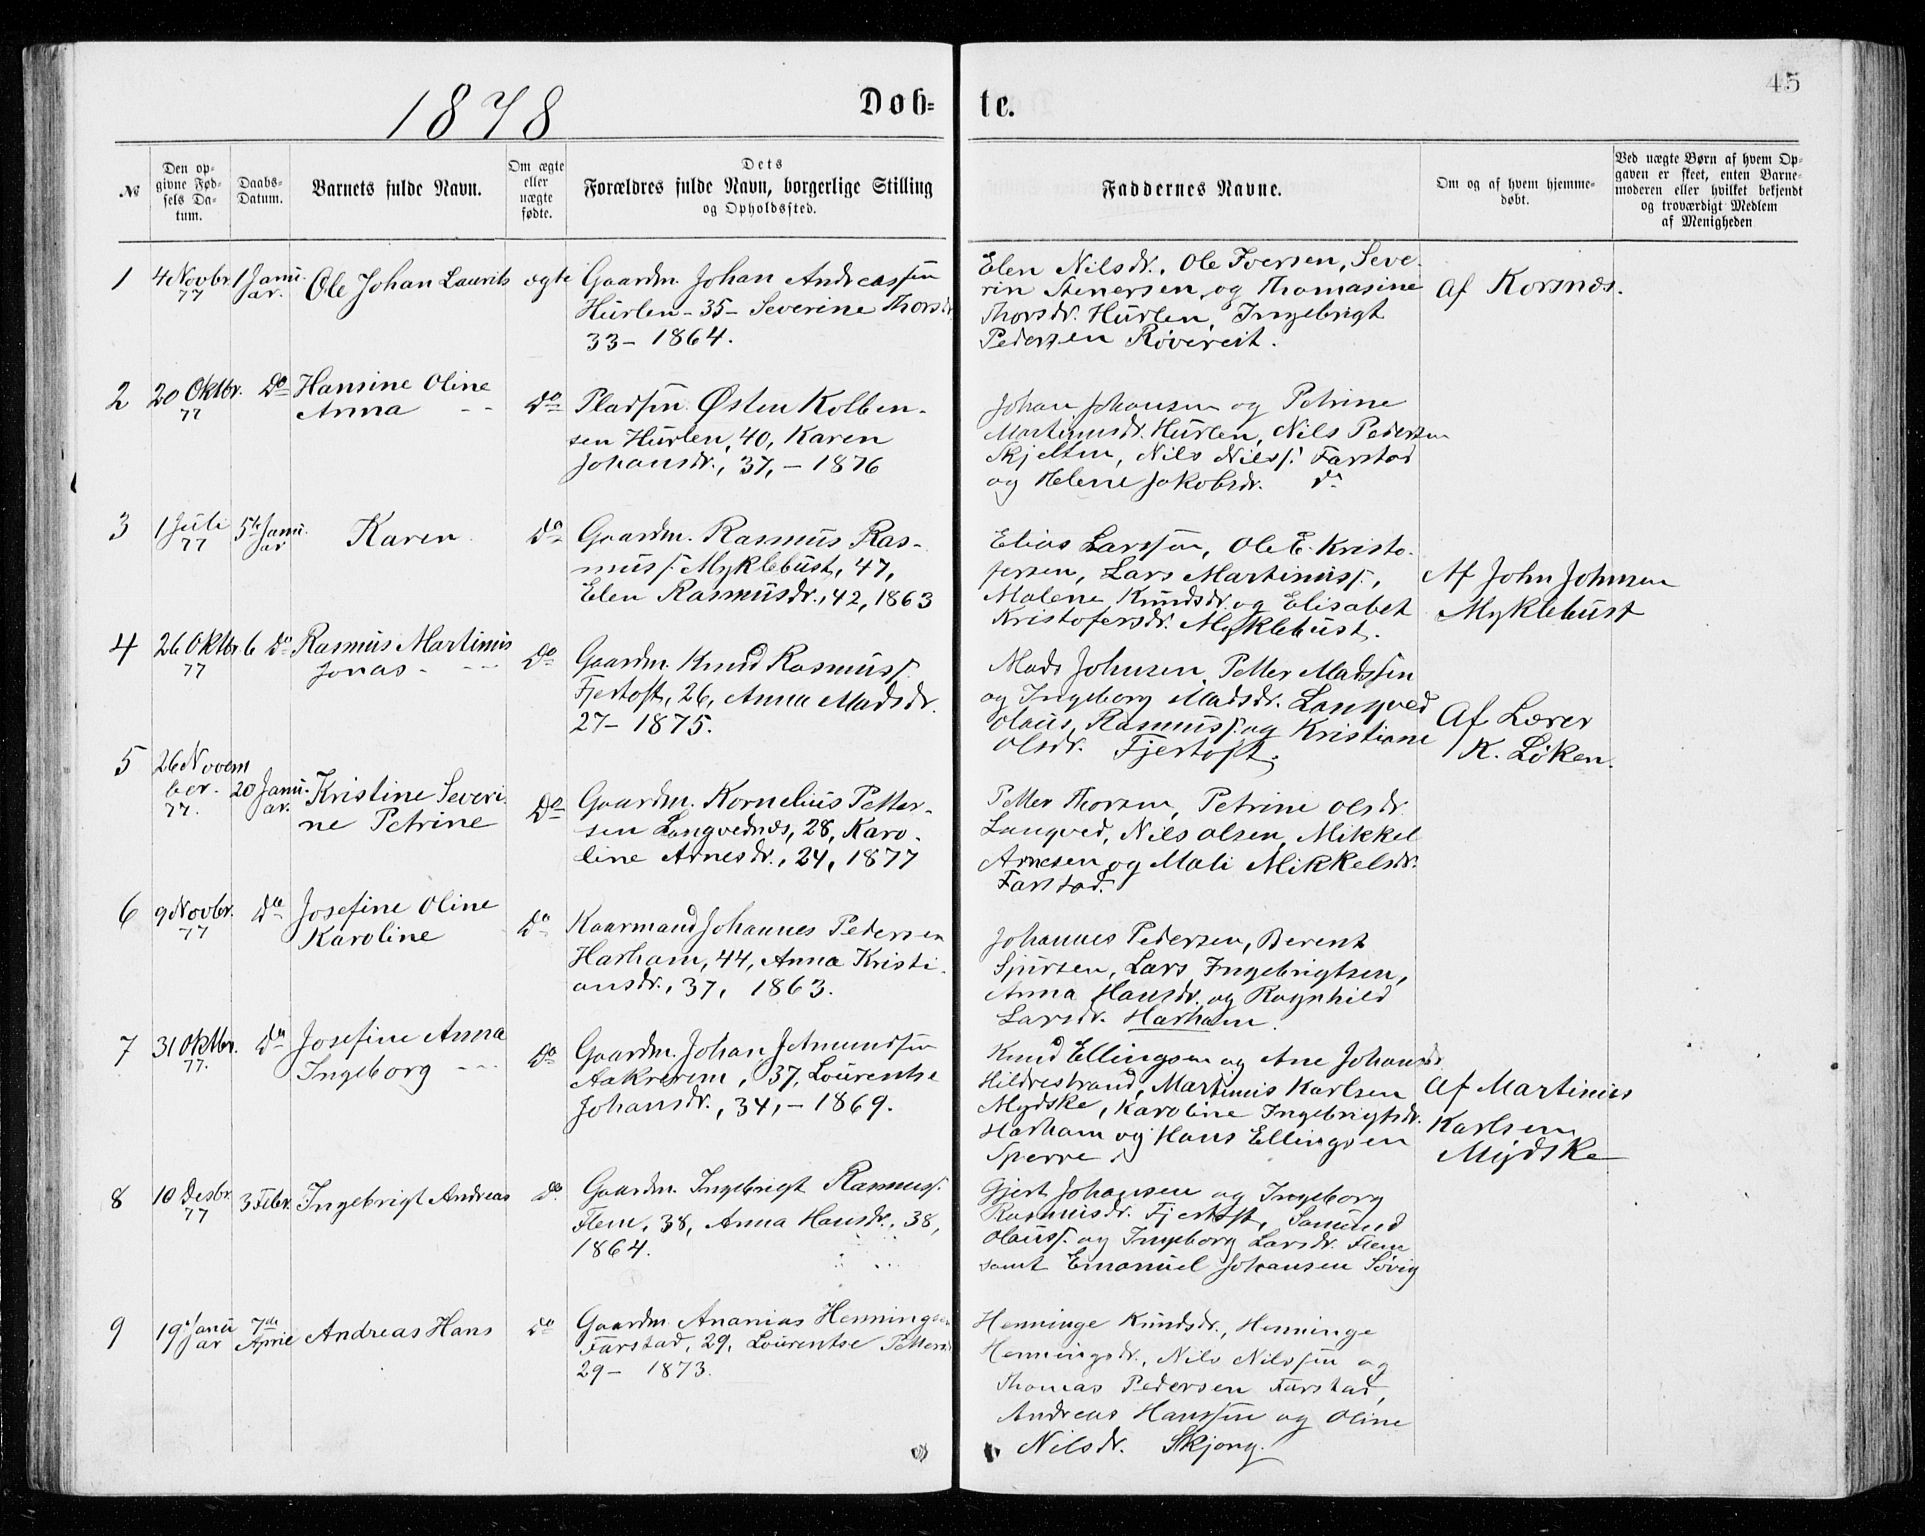 45
1878
Døb-
te.
№
Den op-
givne Fød-
sels Da-
tum.
Daabs-
Datum.
Barnets fulde Navn.
Om ægte
eller
uægte
fødte.
Dets
Forældres fulde Navn, borgerlige Stilling
og Opholdssted.
Faddernes Navne.
Om og af hvem hjemme-
døbt.
Ved uægte Børn af hvem Op-
gaven er skeet, enten Barne-
moderen eller hvilket bekjendt
og troværdigt Medlem
af Menigheden
1
4 Novbr
77
1 Janu-
ar.
Ole Johan Laurits
ægte
Gaardm. Johan Andreassen
Hurlen - 35 - Severine Thorsdr
33 - 1864.
Elen Nilsdr., Ole Iversen, Seve-
rin Stenersen og Thomasine
Thorsdr. Hurlen, Ingebrigt
Pedersen Rövereit.
Af Korsnæs.
2
20 Oktbr.
77
Do
Hansine Oline
Anna - -
Do
Pladsm. Østen Kolben-
sen Hurlen, 40, Karen
Johansdr., 37, - 1876
Johan Johansen og Petrine
Martinusdr. Hurlen, Nils Pedersen
Skjelten, Nils Nilss. Farstad
og Helene Jakobsdr. do
3
1 Juli
77
5te Janu-
ar
Karen
Do
Gaardm. Rasmus Ras-
muss. Myklebust, 47,
Elen Rasmusdr., 42, 1863
Elias Larssen, Ole E. Kristo-
fersen, Lars Martinuss.,
Malene Knudsdr. og Elisabet
Kristofersdr. Myklebust.
Af John Johnsen
Myklebust
4
26 Oktbr
77
6 Do
Rasmus Martinus
Jonas - - -
Do
Gaardm. Knud Rasmuss.
Fjertoft, 26, Anna Madsdr.
27 - 1875.
Mads Johnsen, Petter Madssen
og Ingeborg Madsdr. Langved
Olaus Rasmuss. og Kristiane
Olsdr. Fjertoft.
Af Lærer
K. Löken.
5
26 Novem
ber.
77.
20 Janu-
ar.
Kristine Severi-
ne Petrine
Do
Gaardm. Kornelius Petter-
sen Langvednæs, 28, Karo-
line Arnesdr., 24, 1877
Petter Thorsen, Petrine Olsdr.
Langved, Nils Olsen, Mikkel
Arnesen og Mali Mikkelsdr.
Farstad.
6
9 Novbr.
77
Do
Josefine Oline
Karoline
Do
Kaarmand Johannes Pedersen
Harham, 44, Anna Kristi-
ansdr., 37, 1863.
Johannes Pedersen, Berent
Sjursen, Lars Ingebrigtsen,
Anna Hansdr. og Ragnhild
Larsdr. Harham.
7
31 Oktbr.
77.
Do
Josefine Anna
Ingeborg - - -
Do
Gaardm. Johan Amundsen
Aakrerem, 37, Lourentse
Johansdr., 34, - 1869.
Knud Ellingsen og Ane Johansdr.
Hildrestrand, Martinus Karlsen
Mydske, Karoline Ingebrigtsdr.
Harham og Hans Ellingsen
Sperre
Af Martinius
Karlsen
Mydske
8
10 Desbr.
77
3 Febr.
Ingebrigt Andreas
do
Gaardm. Ingebrigt Rasmuss.
Flem, 38, Anna Hansdr., 38,
1864.
Gjert Johansen og Ingeborg
Rasmusdr. Fjertoft, Samund
Olauss. og Ingeborg Larsdr. Flem
samt Emanuel Johansen Søvig
9
19 Janu
ar
7de
April
Andreas Hans
do
Gaardm. Ananias Henningsen
Farstad, 29, Lourentse Pettersdr
29 - 1873.
Henninge Knudsdr., Henninge
Henningsdr., Nils Nilssen og
Thomas Pedersen Farstad,
Andreas Hanssen og Oline
Nilsdr. Skjong.